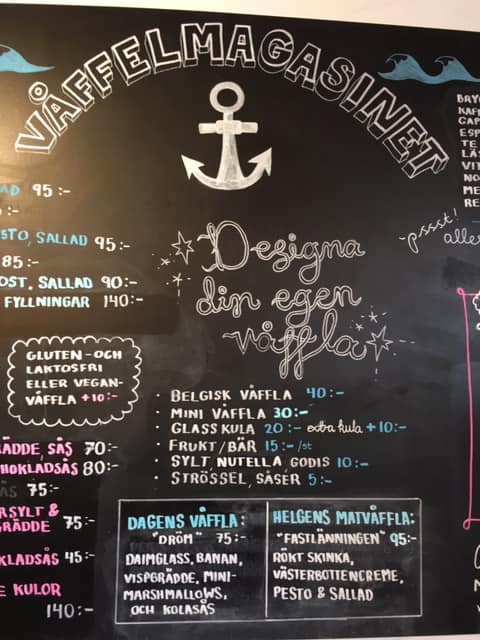 VÅFFELMAGASINET
AD 95:-
:-
STO, SALLAD 95:-
85:-
OST, SALLAD 90:-
FYLLNINGAR 140:-
GLUTEN- OCH
LAKTOSFRI
ELLER VEGAN-
VÅFFLA +10:-
ÄDDE, SÅS 70:-
HOKLADSÅS 80:-
ÅS 75:-
RSYLT &
GRÄDDE 75:-
KLADSÅS 45:-
E KULOR
140:-
Designa
din egen
våffla
· BELGISK VÅFFLA 40:-
· MINI VÅFFLA 30:-
· GLASSKULA 20:- extra kula +10:-
· FRUKT/BÄR 15:-/st
· SYLT, NUTELLA, GODIS 10:-
· STRÖSSEL, SÅSER 5:-
DAGENS VÅFFLA:
"DRÖM" 75:-
DAIMGLASS, BANAN,
VISPGRÄDDE, MINI-
MARSHMALLOWS,
OCH KOLASÅS
HELGENS MATVÅFFLA:
"FASTLÄNNINGEN" 95:-
RÖKT SKINKA,
VÄSTERBOTTENCREME,
PESTO & SALLAD
BRY
KAF
CAP
ESP
TE
LÄS
VIT
NO
ME
RE
~pssst!
alle